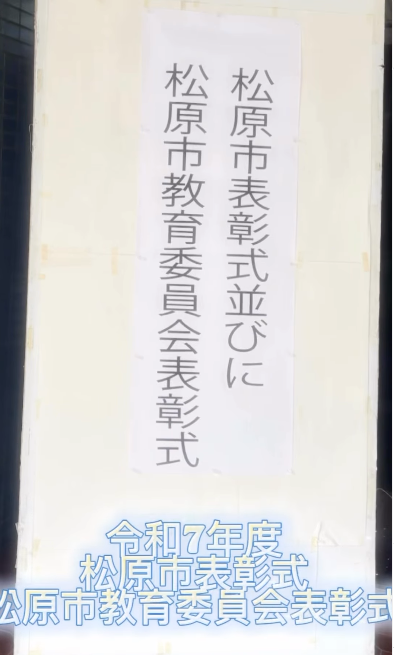 松原市表彰式並びに
松原市教育委員会表彰式
令和7年度
松原市表彰式
松原市教育委員会表彰式